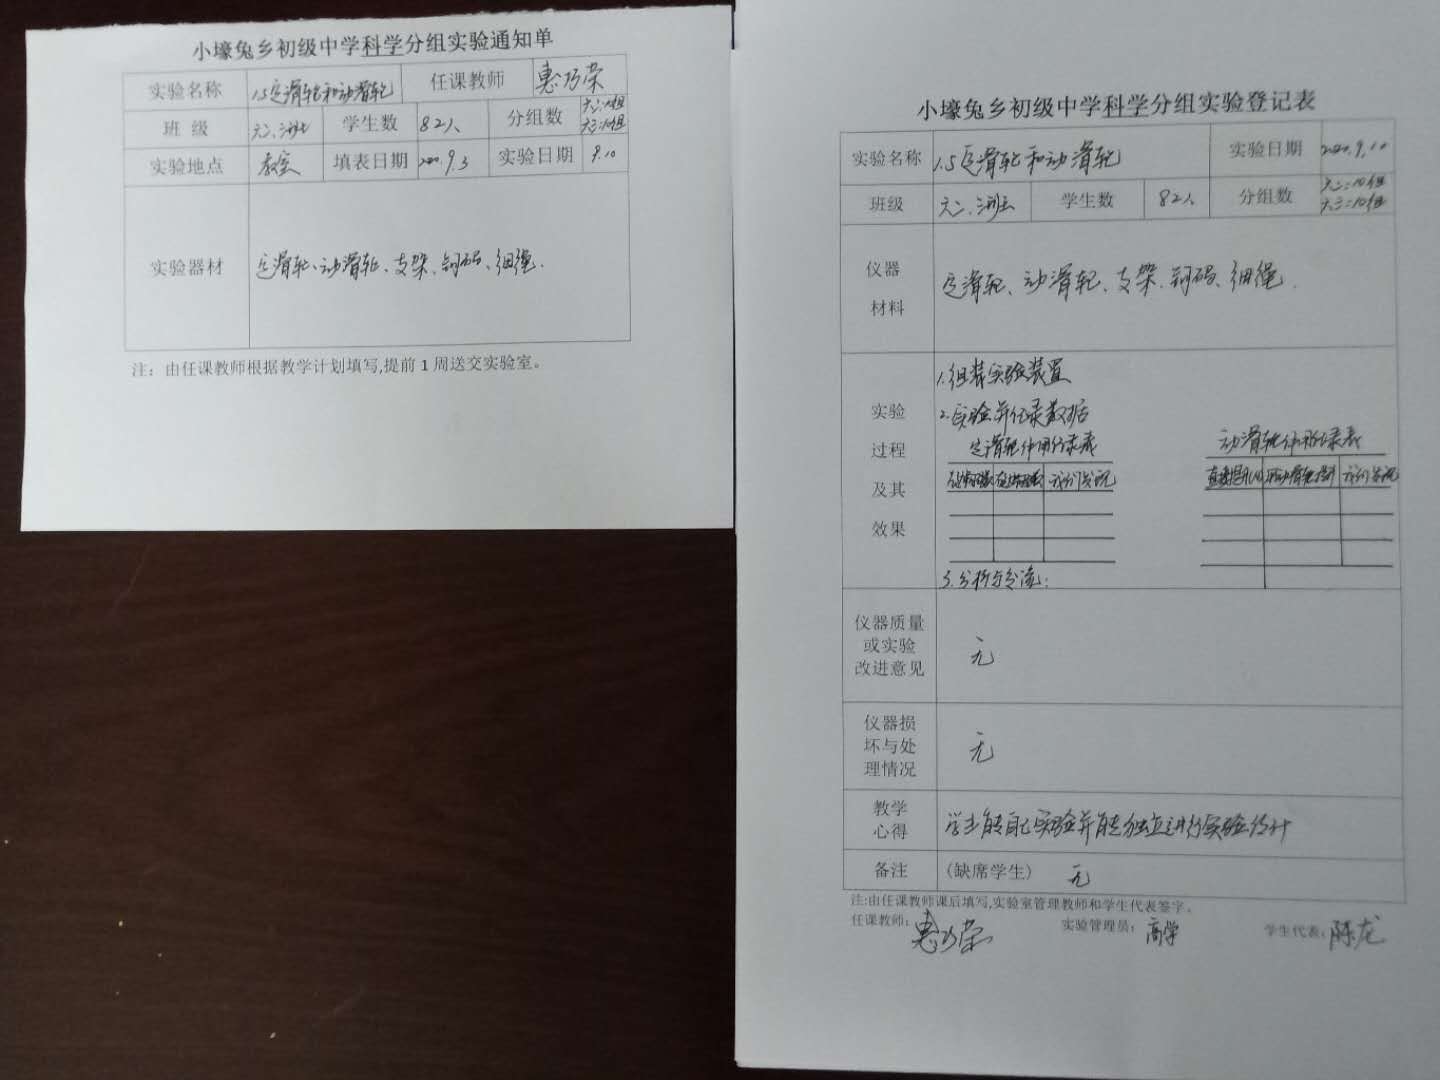 小壕兔乡初级中学科学分组实验通知单
实验名称 1.5定滑轮和动滑轮 任课教师 惠乃荣
班 级 六二、三班 学生数 82人 分组数 六二:10组
六三:10组
实验地点 教室 填表日期 2020.9.3 实验日期 9.10
实验器材 定滑轮、动滑轮、支架、钩码、细绳.
注：由任课教师根据教学计划填写,提前1周送交实验室。
小壕兔乡初级中学科学分组实验登记表
实验名称 1.5定滑轮和动滑轮 实验日期 2020.9.10
班级 六二、三班 学生数 82人 分组数 六二:10组
六三:10组
仪器
材料
定滑轮、动滑轮、支架、钩码、细绳.
实验
过程
及其
效果
1.组装实验装置
2.实验并记录数据
定滑轮作用记录表 动滑轮作用记录表
我们的发现 我们的发现
3.分析与交流:
仪器质量
或实验
改进意见
无
仪器损
坏与处
理情况
无
教学
心得
学生能自己实验并能独立进行实验设计
备注 (缺席学生) 无
注:由任课教师课后填写,实验室管理教师和学生代表签字。
任课教师: 惠乃荣 实验管理员: 高学 学生代表: 陈龙